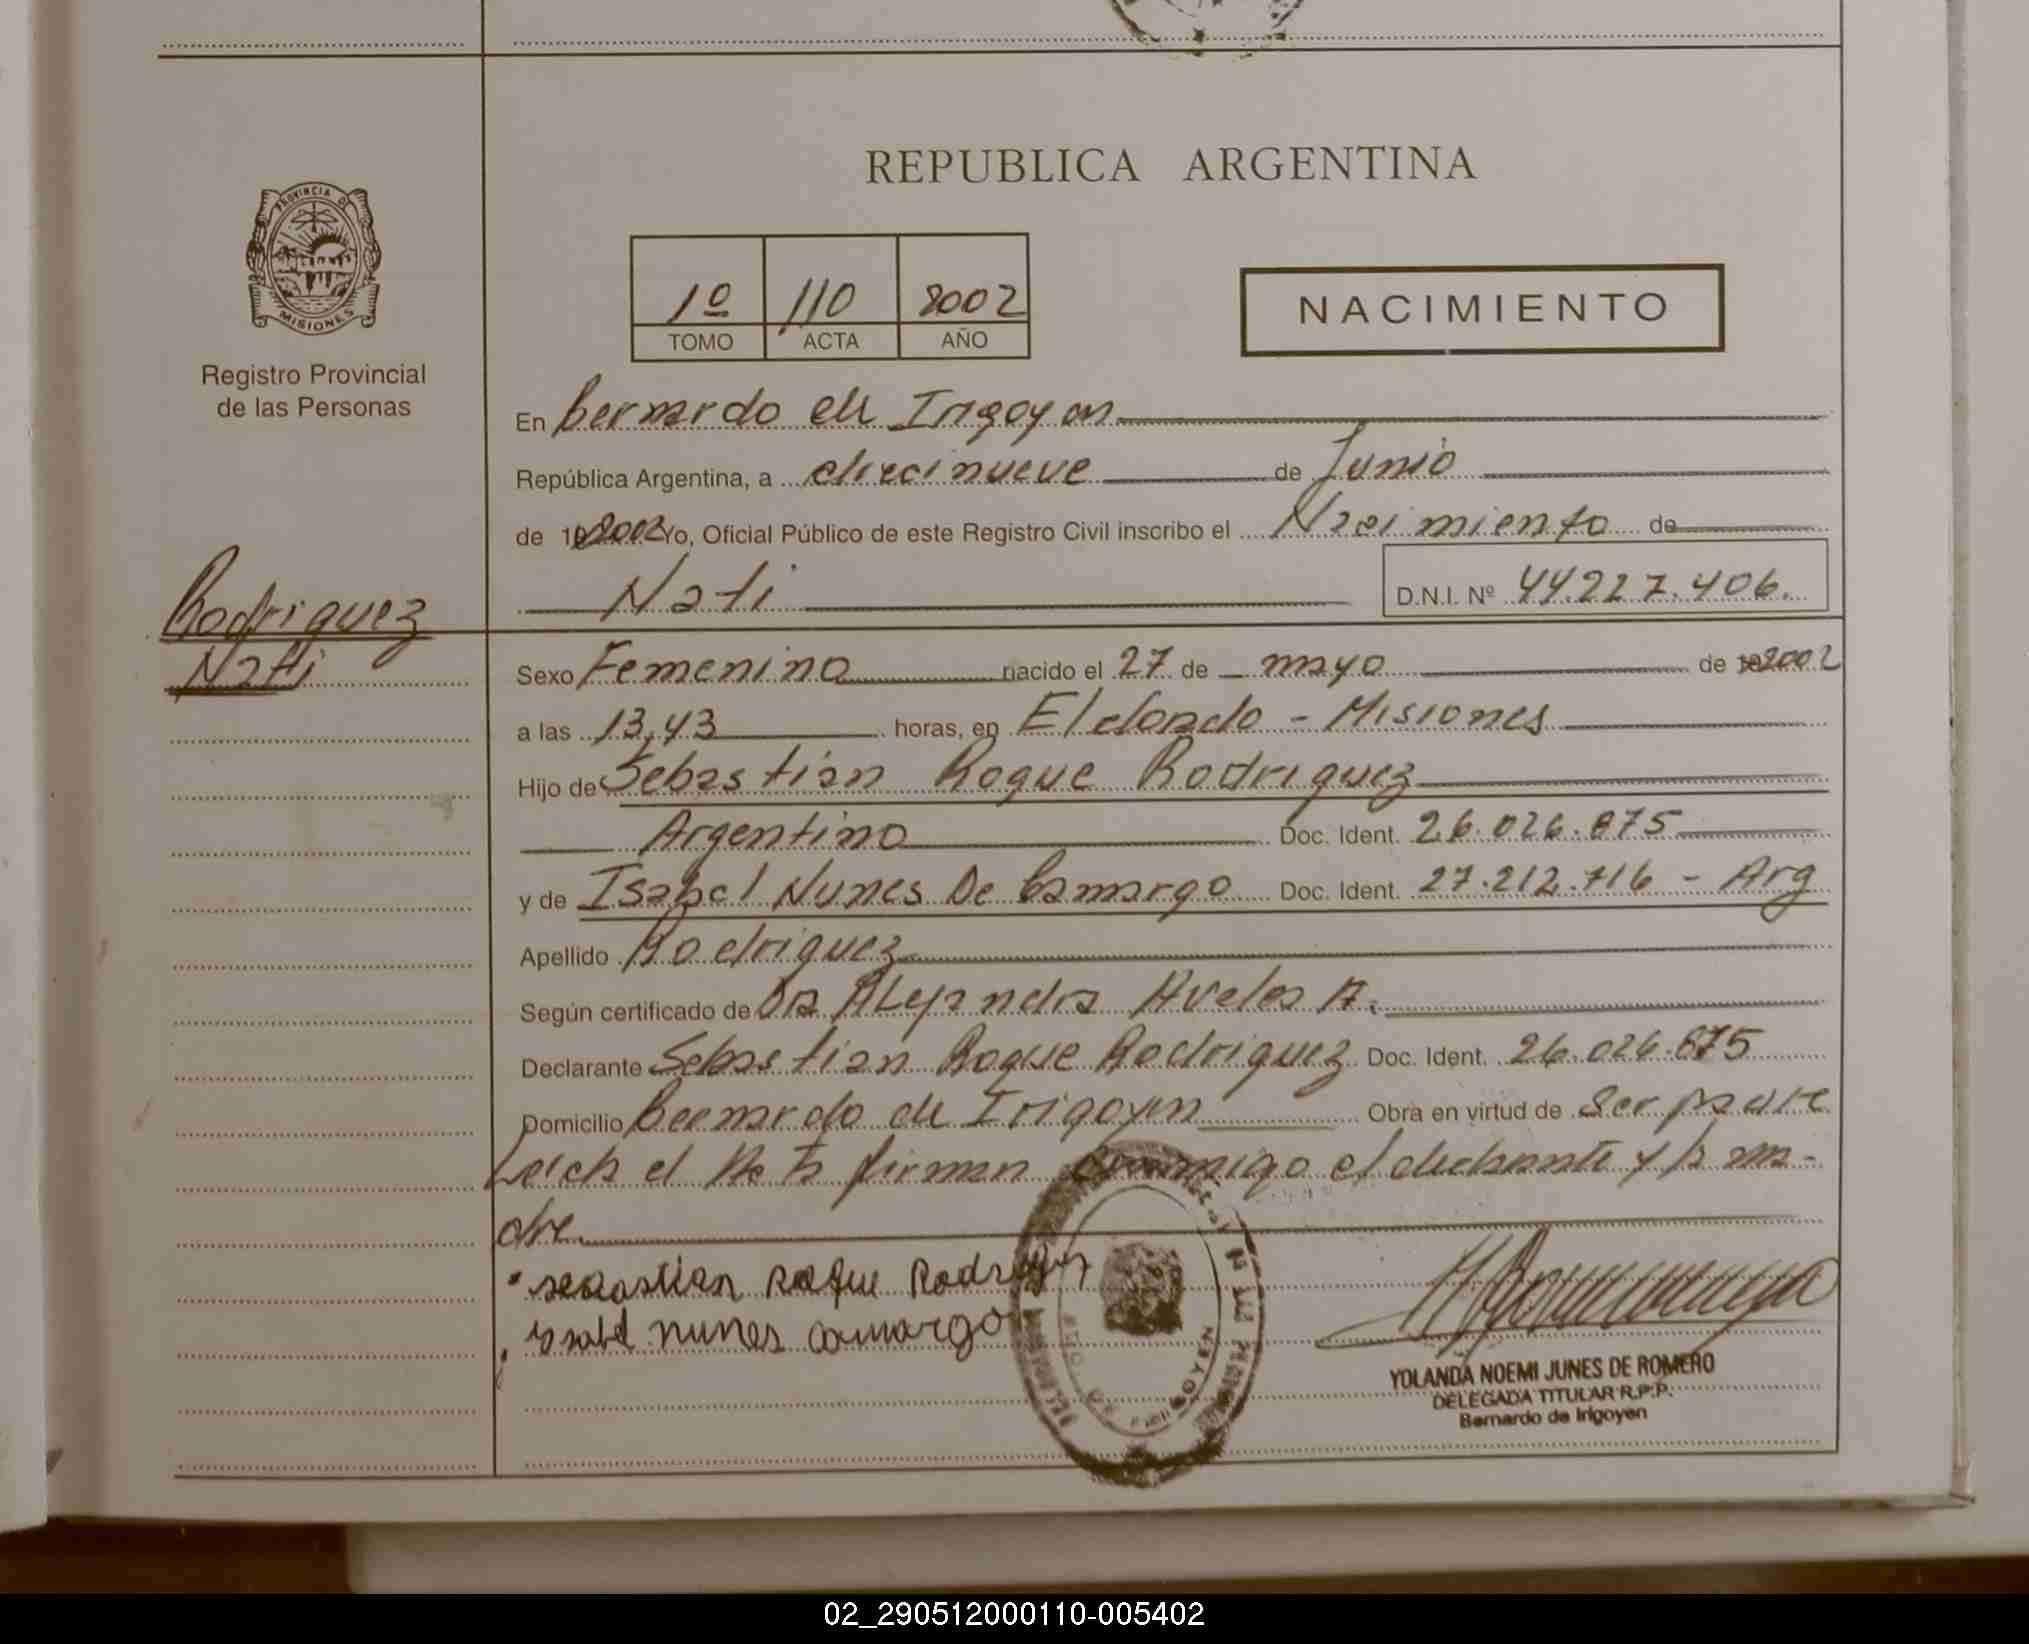 REPUBLICA ARGENTINA
PROVINCIA DE
MISIONES
Registro Provincial
de las Personas
1º 110 2002
TOMO ACTA AÑO
NACIMIENTO
En Bernardo de Irigoyen
República Argentina, a diecinueve de Junio
de 2002 Yo, Oficial Público de este Registro Civil inscribo el Nacimiento de
Nati D.N.I. Nº 44.227.406.
Rodriguez
Nati
Sexo Femenino nacido el 27 de mayo de 2002
a las 13,43 horas, en Eldorado - Misiones
Hijo de Sebastian Roque Rodriguez
Argentino Doc. Ident. 26.026.875
y de Isabel Nunes De Camargo Doc. Ident. 27.212.716 - Arg
Apellido Rodriguez
Según certificado de Dra Alejandra A.
Declarante Sebastian Roque Rodriguez Doc. Ident. 26.026.875
Domicilio Bernardo de Irigoyen Obra en virtud de Ser padre
Leida el Acta firman conmigo el declarante y la ma-
dre
Sebastian Roque Rodriguez
Isabel nunes camargo
YOLANDA NOEMI JUNES DE ROMERO
DELEGADA TITULAR R.P.P.
Bernardo de Irigoyen
02_290512000110-005402